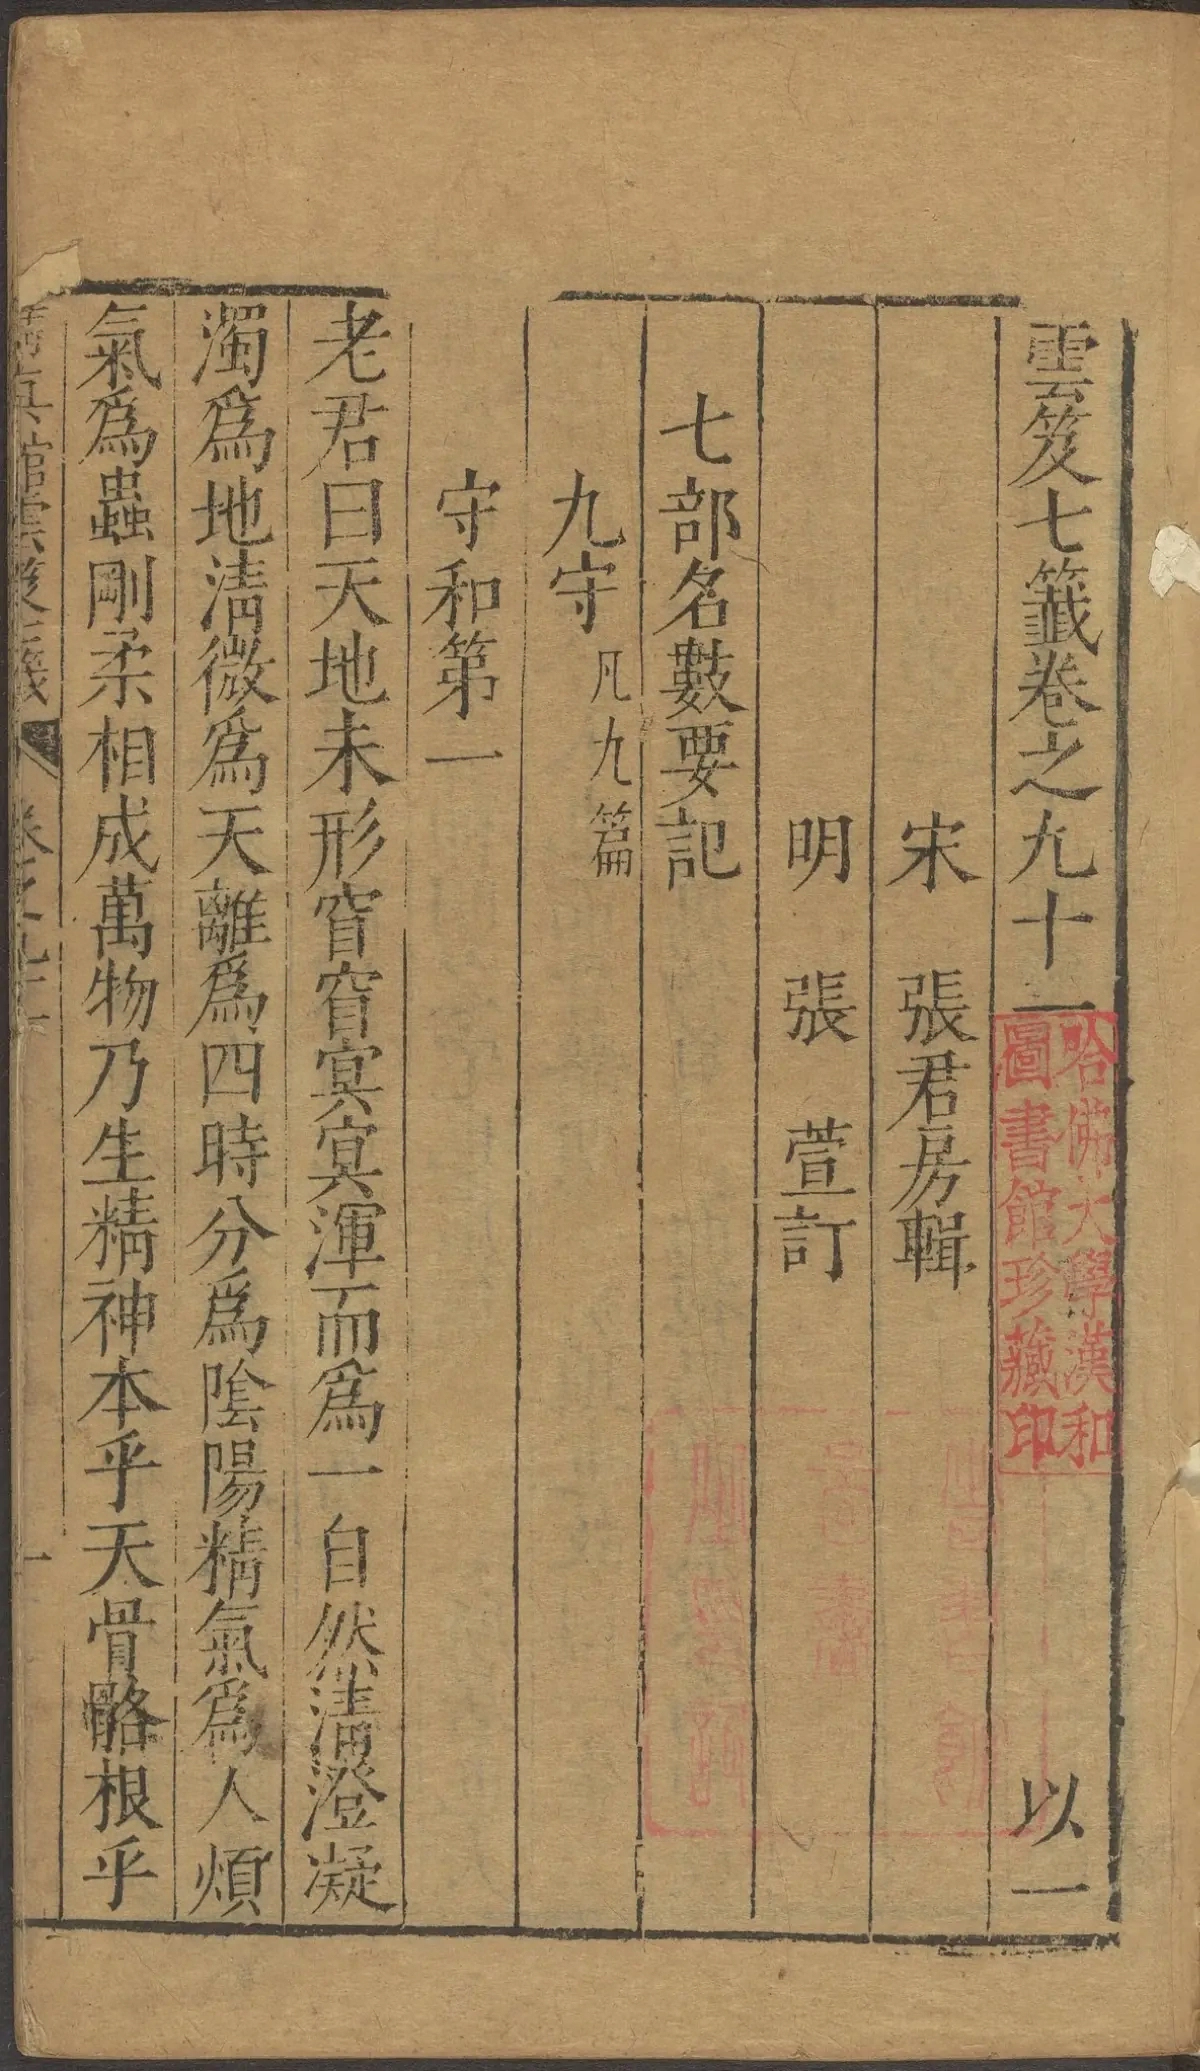 雲笈七籤卷之九十一 以一
宋 張君房輯
明 張 萱訂
七部名數要記
九守 凡九篇
守和第一
老君曰天地未形窅窅冥冥渾而為一自然清澄凝
濁為地清微為天離為四時分為陰陽精氣為人煩
氣為蟲剛柔相成萬物乃生精神本乎天骨骼根乎
清真館雲笈七籤 卷之九十一 一
哈佛大學漢和
圖書館珍藏印